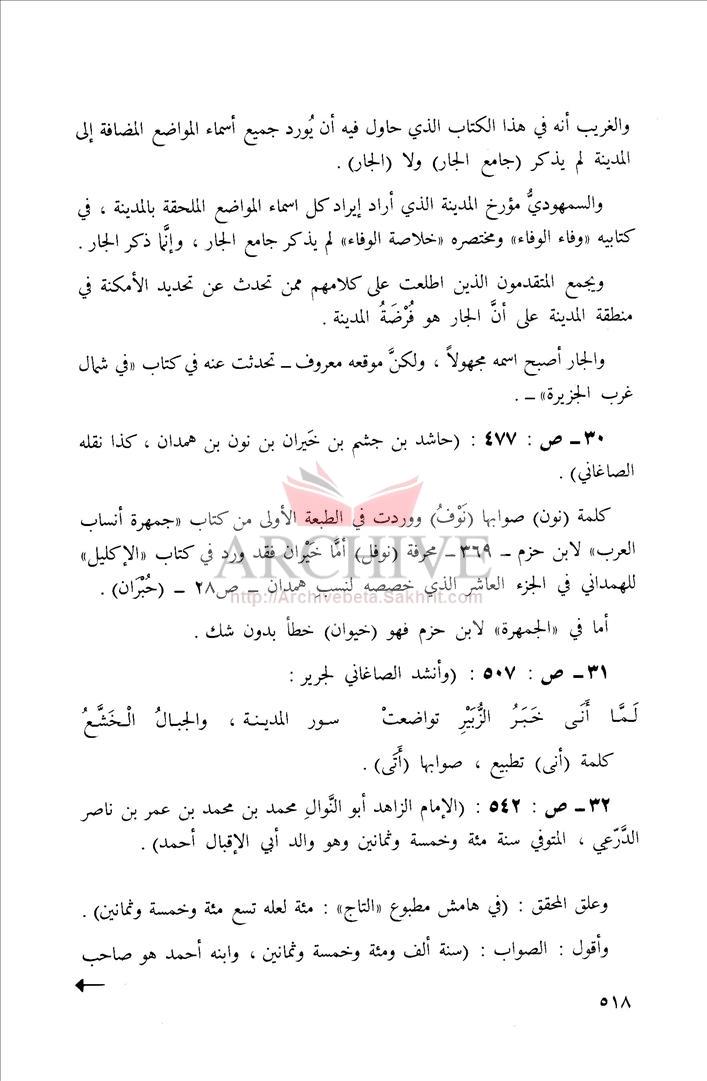 والغريب أنه في هذا الكتاب الذي حاول فيه أن يُورد جميع أسماء المواضع المضافة إلى
المدينة لم يذكر (جامع الجار) ولا (الجار) .
والسمهوديُّ مؤرخ المدينة الذي أراد إيراد كل اسماء المواضع الملحقة بالمدينة ، في
كتابيه «وفاء الوفاء» ومختصره «خلاصة الوفاء» لم يذكر جامع الجار ، وإنَّما ذكر الجار .
ويجمع المتقدمون الذين اطلعت على كلامهم ممن تحدث عن تحديد الأمكنة في
منطقة المدينة على أنَّ الجار هو فُرْضَةُ المدينة .
والجار أصبح اسمه مجهولاً ، ولكنَّ موقعه معروف ــ تحدثت عنه في كتاب «في شمال
غرب الجزيرة» ــ .
٣٠ ــ ص : ٤٧٧ : (حاشد بن جشم بن خَيران بن نون بن همدان ، كذا نقله
الصاغاني) .
كلمة (نون) صوابها (نَوْفُ) ووردت في الطبعة الأولى من كتاب «جمهرة أنساب
العرب» لابن حزم ــ ٣٦٩ ــ محرفة (نوفل) أمَّا خَيْران فقد ورد في كتاب «الإكليل»
ARCHIVE
للهمداني في الجزء العاشر الذي خصصه لنسب همدان ــ ص٢٨ ــ (حُبْرَان) .
http://Archivebeta.Sakhrit.com
أما في «الجمهرة» لابن حزم فهو (خيوان) خطأ بدون شك .
٣١ ــ ص : ٥٠٧ : (وأنشد الصاغاني لجرير :
لَـمَّـا أَنَـى خَـبَـرُ الزُّبَيْرِ تواضعتْ سـور المديـنـة ، والجبـالُ الْـخَـشَّـعُ
كلمة (أنى) تطبيع ، صوابها (أَتَى) .
٣٢ ــ ص : ٥٤٢ : (الإمام الزاهد أبو النَّوالِ محمد بن محمد بن عمر بن ناصر
الدَّرْعِي ، المتوفي سنة مئة وخمسة وثمانين وهو والد أبي الإقبال أحمد) .
وعلق المحقق : (في هامش مطبوع «التاج» : مئة لعله تسع مئة وخمسة وثمانين) .
وأقول : الصواب : (سنة ألف ومئة وخمسة وثمانين ، وابنه أحمد هو صاحب
٥١٨